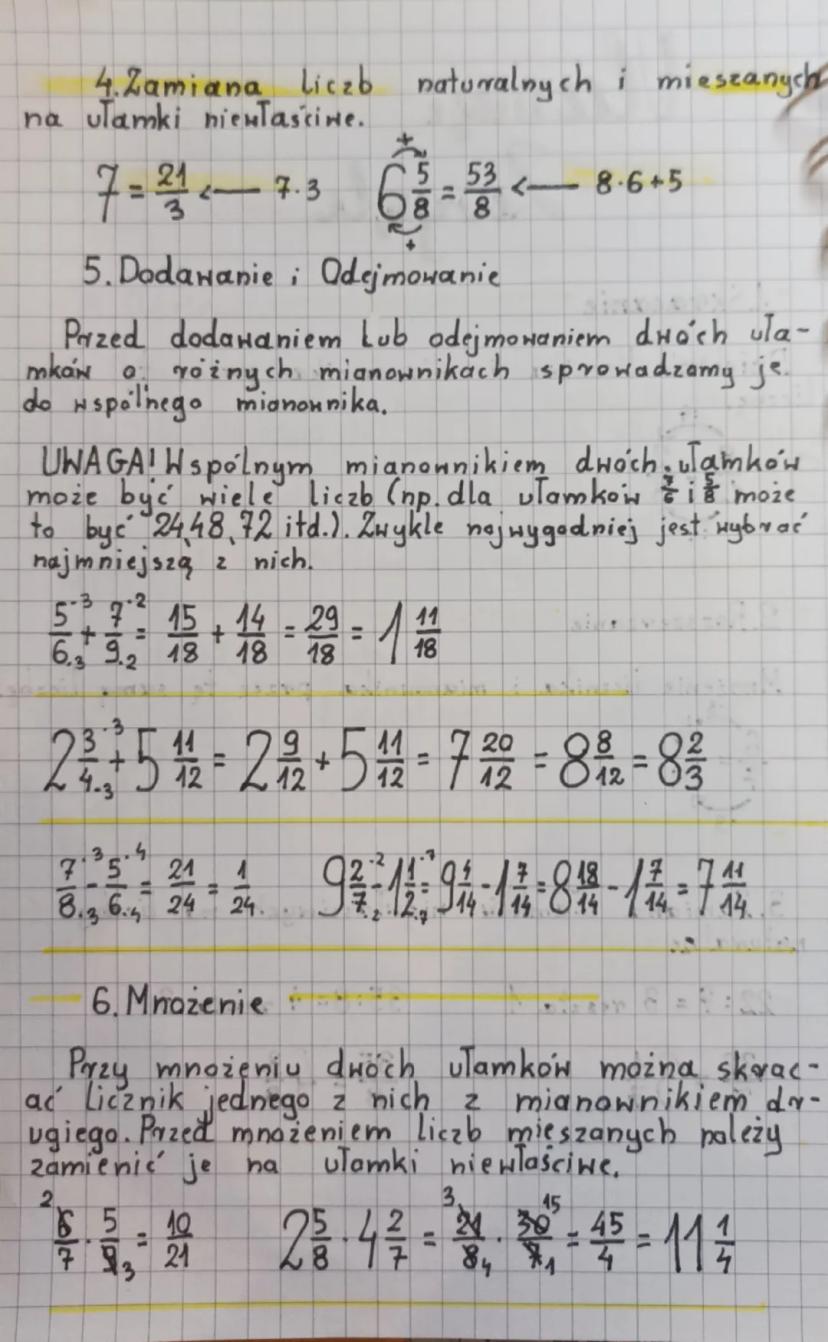 4. Zamiana liczb naturalnych i mieszanych
na ułamki niewłaściwe.
7 = 21/3 <— 7·3    6 5/8 = 53/8 <— 8·6+5
5. Dodawanie i Odejmowanie
Przed dodawaniem lub odejmowaniem dwóch uła-
mków o różnych mianownikach sprowadzamy je
do wspólnego mianownika.
UWAGA! Wspólnym mianownikiem dwóch ułamków
może być wiele liczb (np. dla ułamków i 5/8 może
to być 24, 48, 72 itd.). Zwykle najwygodniej jest wybrać
najmniejszą z nich.
5·3/6·3 + 7·2/9·2 = 15/18 + 14/18 = 29/18 = 1 11/18
2 3·3/4·3 + 5 11/12 = 2 9/12 + 5 11/12 = 7 20/12 = 8 8/12 = 8 2/3
7·3/8·3 - 5·4/6·4 = 21/24 = 1/24    9 2·2/7·2 - 1 1·7/2·7 = 9 4/14 - 1 7/14 = 8 18/14 - 1 7/14 = 7 11/14
6. Mnożenie
Przy mnożeniu dwóch ułamków można skrac-
ać licznik jednego z nich z mianownikiem dr-
ugiego. Przed mnożeniem liczb mieszanych należy
zamienić je na ułamki niewłaściwe.
2 6/7 · 5/9 3 = 10/21    2 5/8 · 4 2/7 = 3 21/8 4 · 30 15/7 1 = 45/4 = 11 1/4